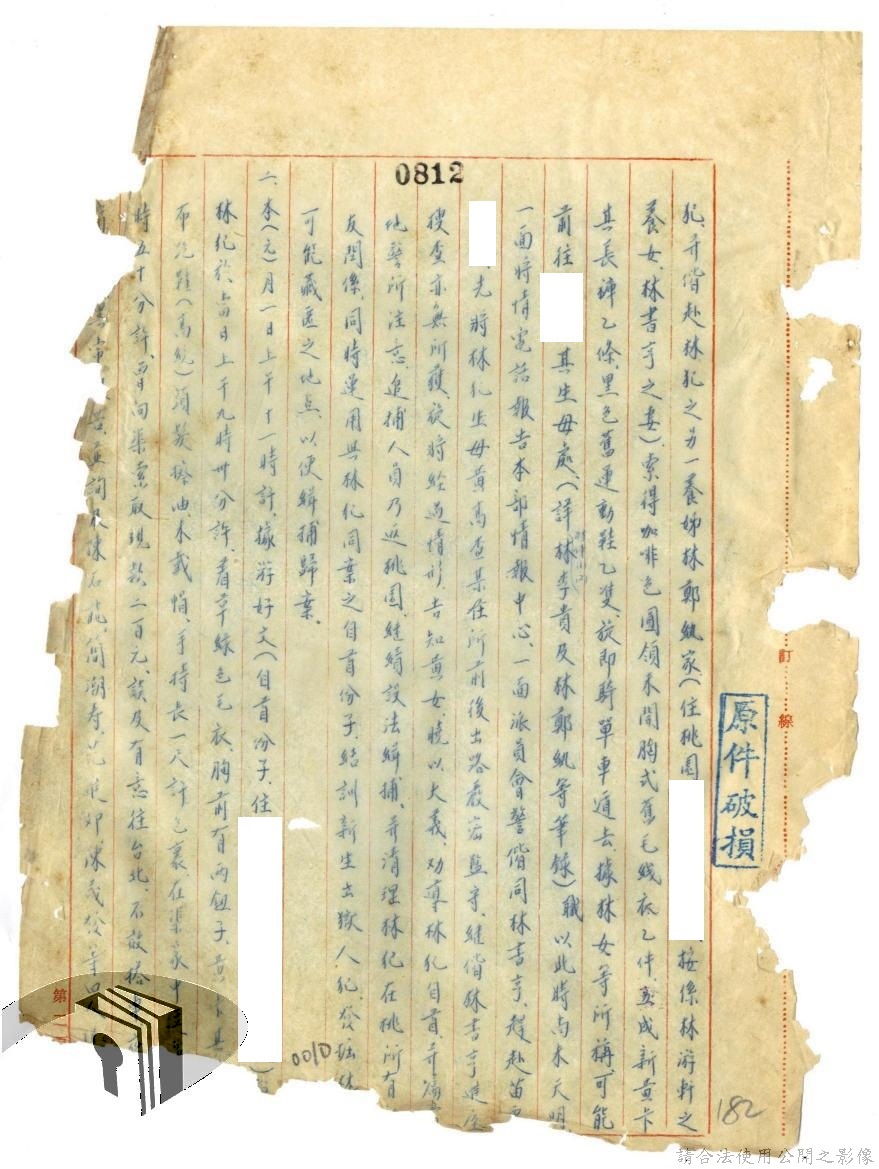 0812
犯,并偕赴林犯之另一養姊林鄭紈家(住桃園 按係林游軒之
養女,林書亨之妻)、索得咖啡色圓領未開胸式舊毛綫衣乙件,新黃卡
其長褲乙條,黑色舊運動鞋乙雙,旋即騎單車遁去,據林女等所稱可能
前往 其生母處、(詳林李貴及林鄭紈等筆錄)職以此時尚未天明
一面將情電話報告本部情報中心、一面派員會警偕同林書亨、趕赴苗
先將林犯生母黃 住所前後出路嚴密監守、繼偕林書亨進屋
搜查亦無所獲,旋時經過情形,告知黃女,曉以大義,勸導林犯自首,并
地警所注意、追捕人員乃返桃園,繼續設法緝捕,并清理林犯在桃所有
友関係,同時運用與林犯同案之自首份子,結訓新生出獄人犯,發掘
可能藏匿之地点,以便緝捕歸案。
二、本(元)月一日上午十一時許,據游好文(自首份子,住 )
林犯於當日上午九時卅分許,着草綠色毛衣、胸前有兩鈕子、黃卡其
布 鞋(馬統)頭髮搽油,未戴帽,手持長一尺許包裹,在渠家中
時五十分許,曾向渠索取現款二百元,談及有意往台北,不敢搭車
查詢 陳石龍、簡潮寿、范 陳茂發等四人
訂
線
原件破損
第
0010
182
請合法使用公開之影像